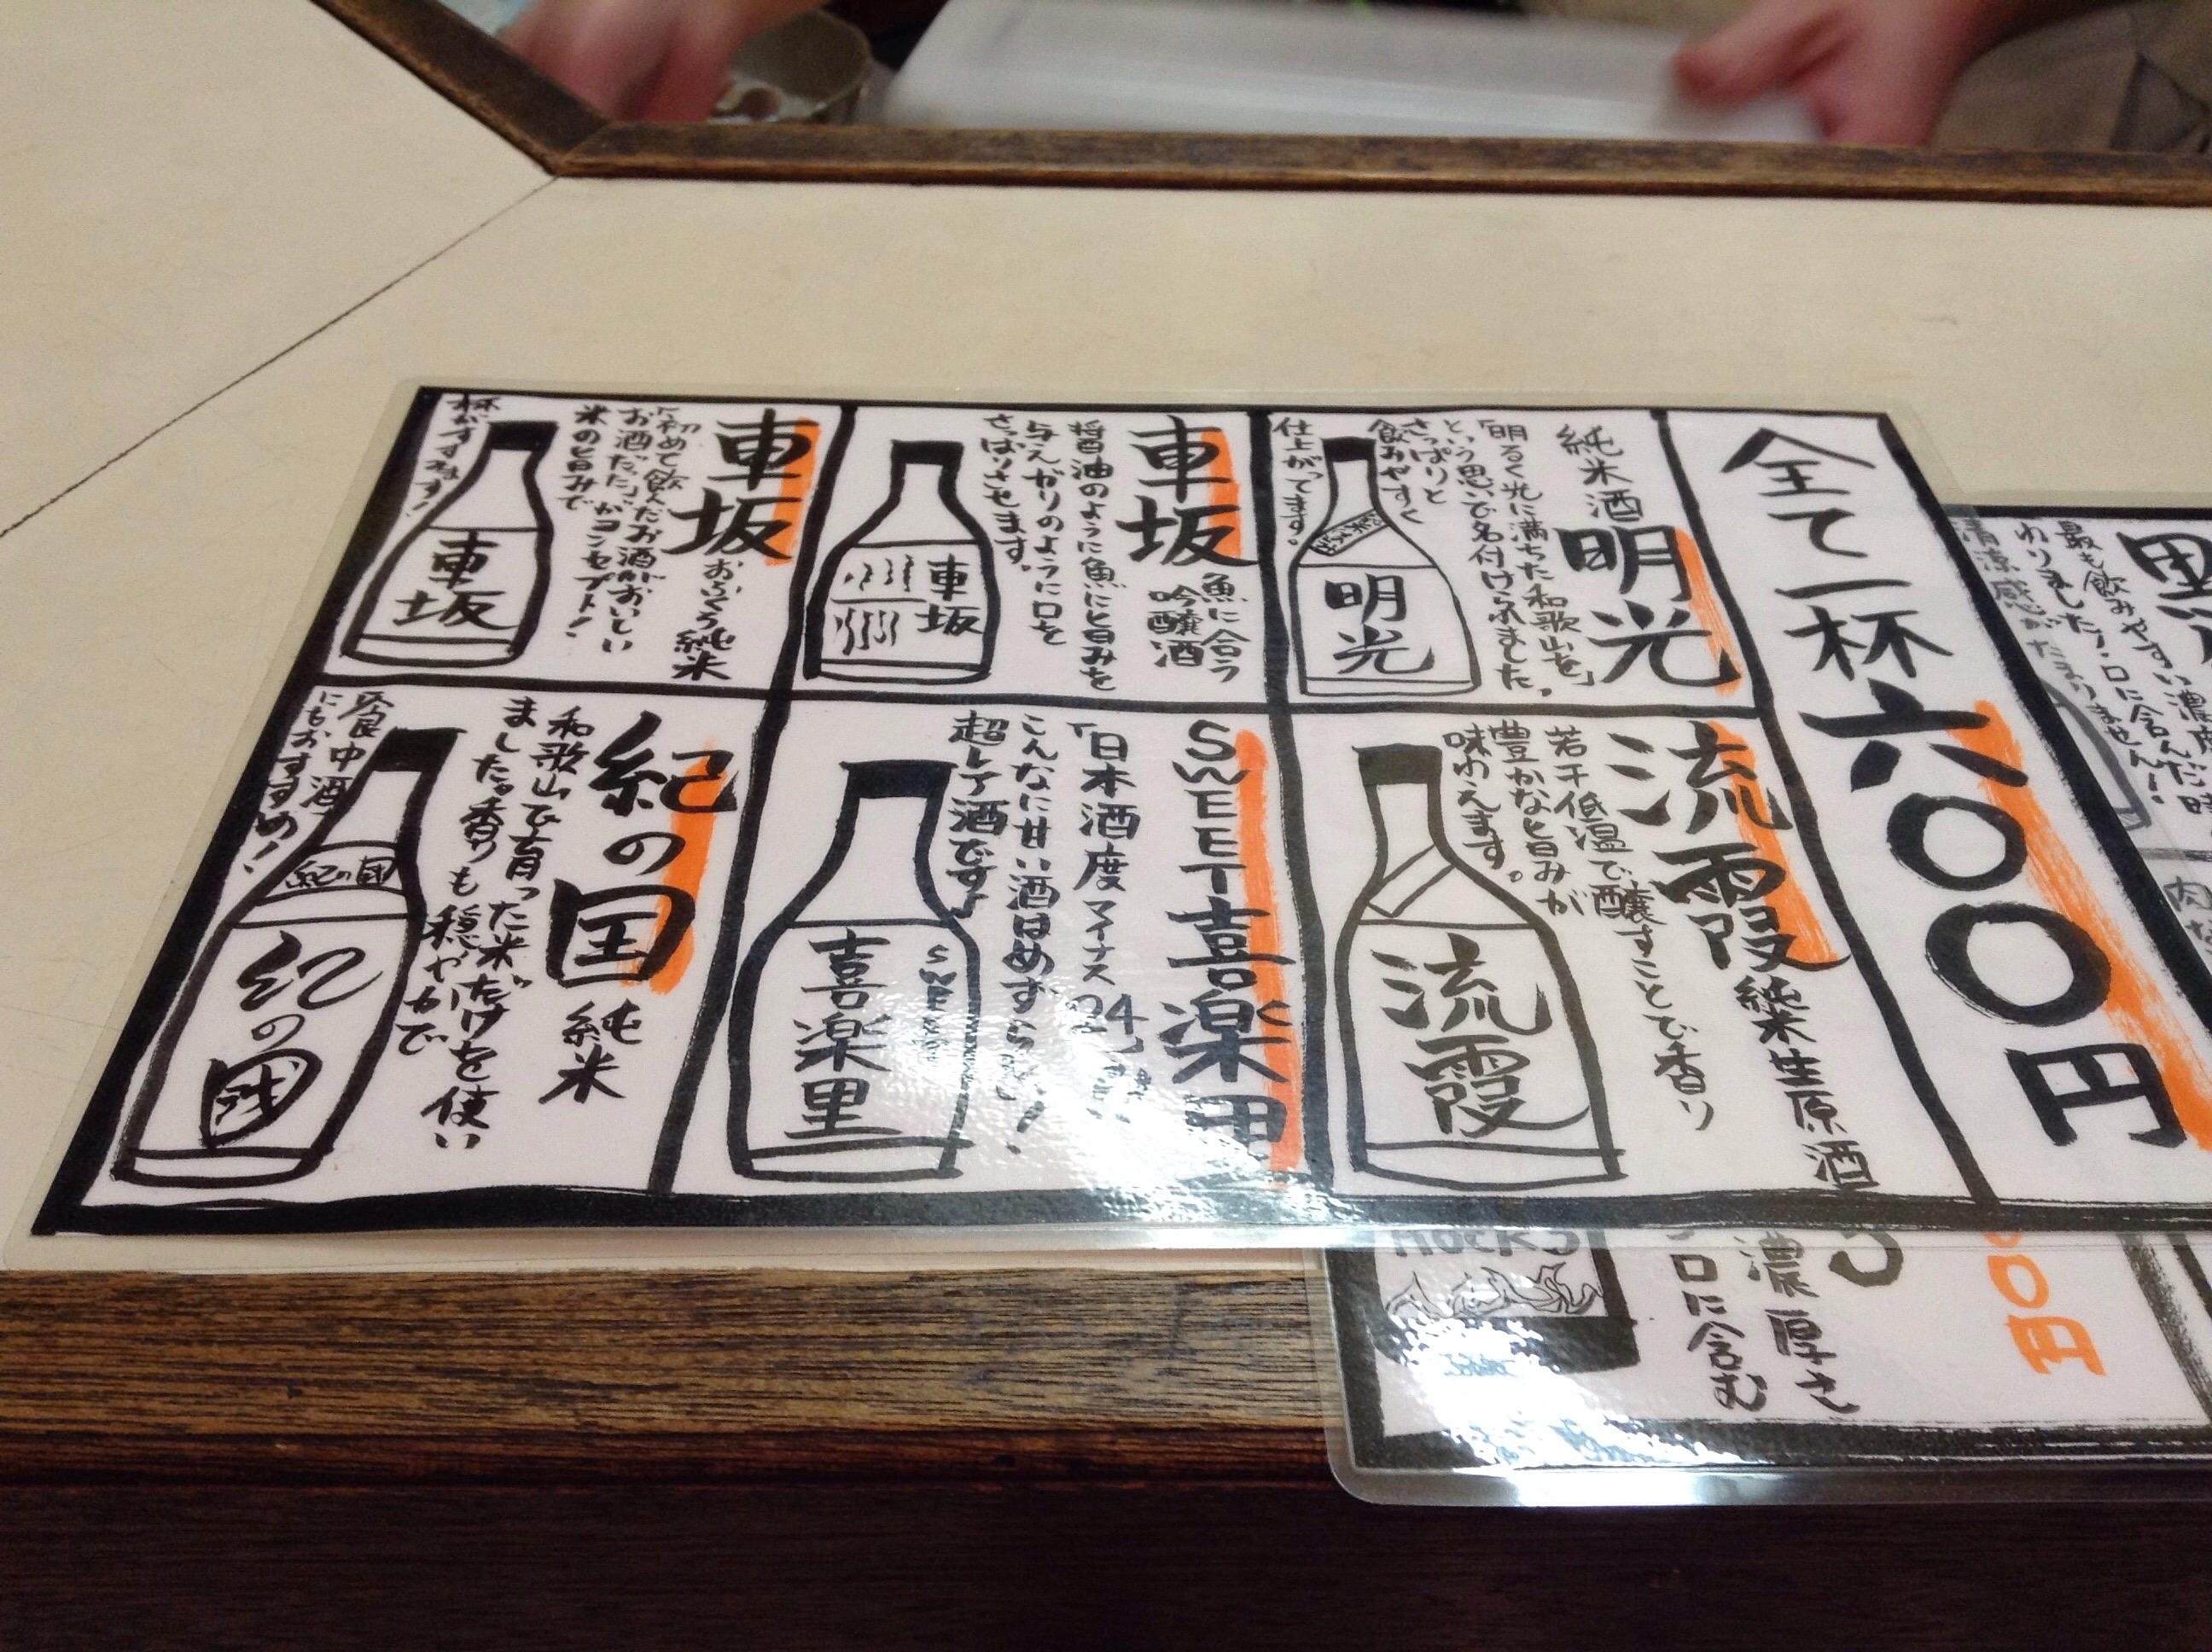 全て一杯六〇〇円
純米酒 明光
「明るく光に満ちた和歌山を」
という思いで名付けられました。
さっぱりと
飲みやすく
仕上がってます。
明光
車坂 魚に合う
吟醸酒
醤油のように魚に旨みを
与えがりのように口を
さっぱりさせます。
車坂
車坂 おふくろ純米
「初めて飲んだお酒がおいしい
お酒だった」がコンセプト!
米の旨みで
杯がすすみます!
車坂
流霞 純米生原酒
若干低温で醸すことで香り
豊かな旨みが
味わえます。
流霞
SWEET喜楽里
「日本酒度マイナス24」
こんなに甘い酒はめずらしい!
超レア酒です
喜楽里
SWEET
紀の国 純米
和歌山で育った米だけを使い
ました。香りも穏やかで
食中酒
にもおすすめ!
紀の國
紀の國
最も飲みやすい濃
わりました!口に含んだ時
清涼感がたまりません!
Rocks
濃厚さ
口に含む
00円